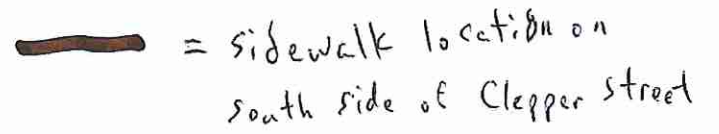 = sidewalk location on
south side of Clepper street